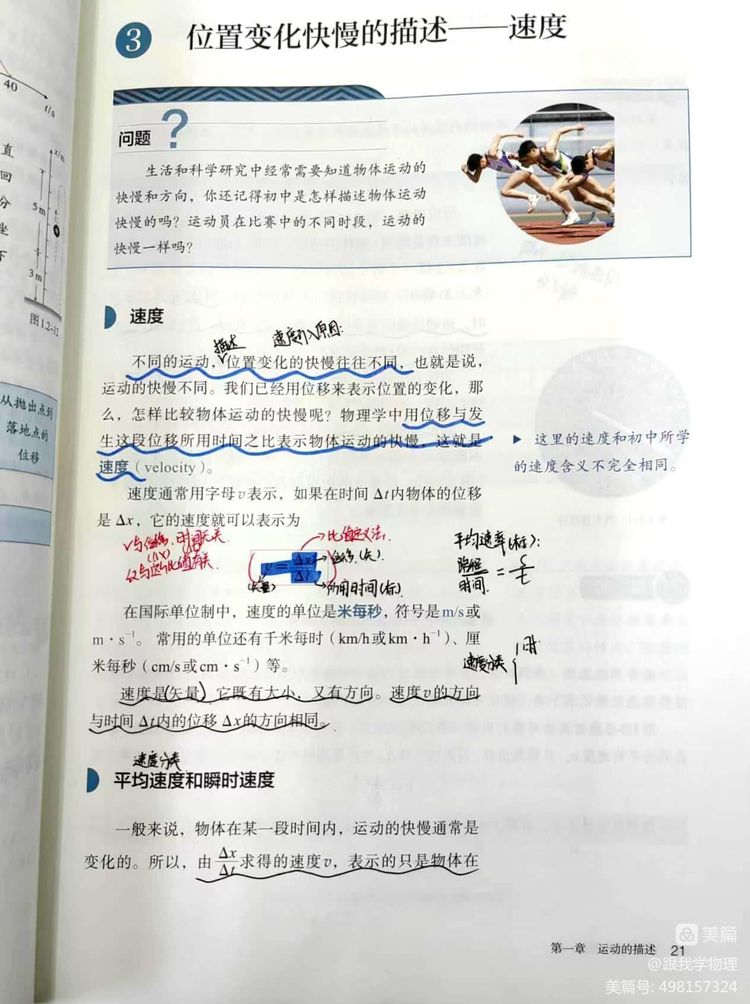 40
t/s
直
回
分
坐
下
x/m
5 m
3 m
图1.2-12
从抛出点到
落地点的
位移
3 位置变化快慢的描述——速度
问题?
生活和科学研究中经常需要知道物体运动的
快慢和方向，你还记得初中是怎样描述物体运动
快慢的吗？运动员在比赛中的不同时段，运动的
快慢一样吗？
速度
描述 速度引入原因:
不同的运动，位置变化的快慢往往不同，也就是说，
运动的快慢不同。我们已经用位移来表示位置的变化，那
么，怎样比较物体运动的快慢呢？物理学中用位移与发
生这段位移所用时间之比表示物体运动的快慢，这就是
速度（velocity）。
▶ 这里的速度和初中所学
的速度含义不完全相同。
速度通常用字母v表示，如果在时间 Δt内物体的位移
是 Δx，它的速度就可以表示为
v与位移，时间无关
(Δx)
仅与它们比值有关
比值定义法
v = Δx/Δt
位移(矢)
(矢量)
所用时间(标)
平均速率(标):
路程/时间 = s/t
在国际单位制中，速度的单位是米每秒，符号是m/s或
m·s⁻¹。常用的单位还有千米每时（km/h或km·h⁻¹）、厘
米每秒（cm/s或cm·s⁻¹）等。
速度分类
速度是(矢量)，它既有大小，又有方向。速度v的方向
与时间 Δt内的位移 Δx的方向相同。
速度分类
平均速度和瞬时速度
一般来说，物体在某一段时间内，运动的快慢通常是
变化的。所以，由Δx/Δt求得的速度v，表示的只是物体在
第一章 运动的描述 21
美篇
@跟我学物理
美篇号: 498157324